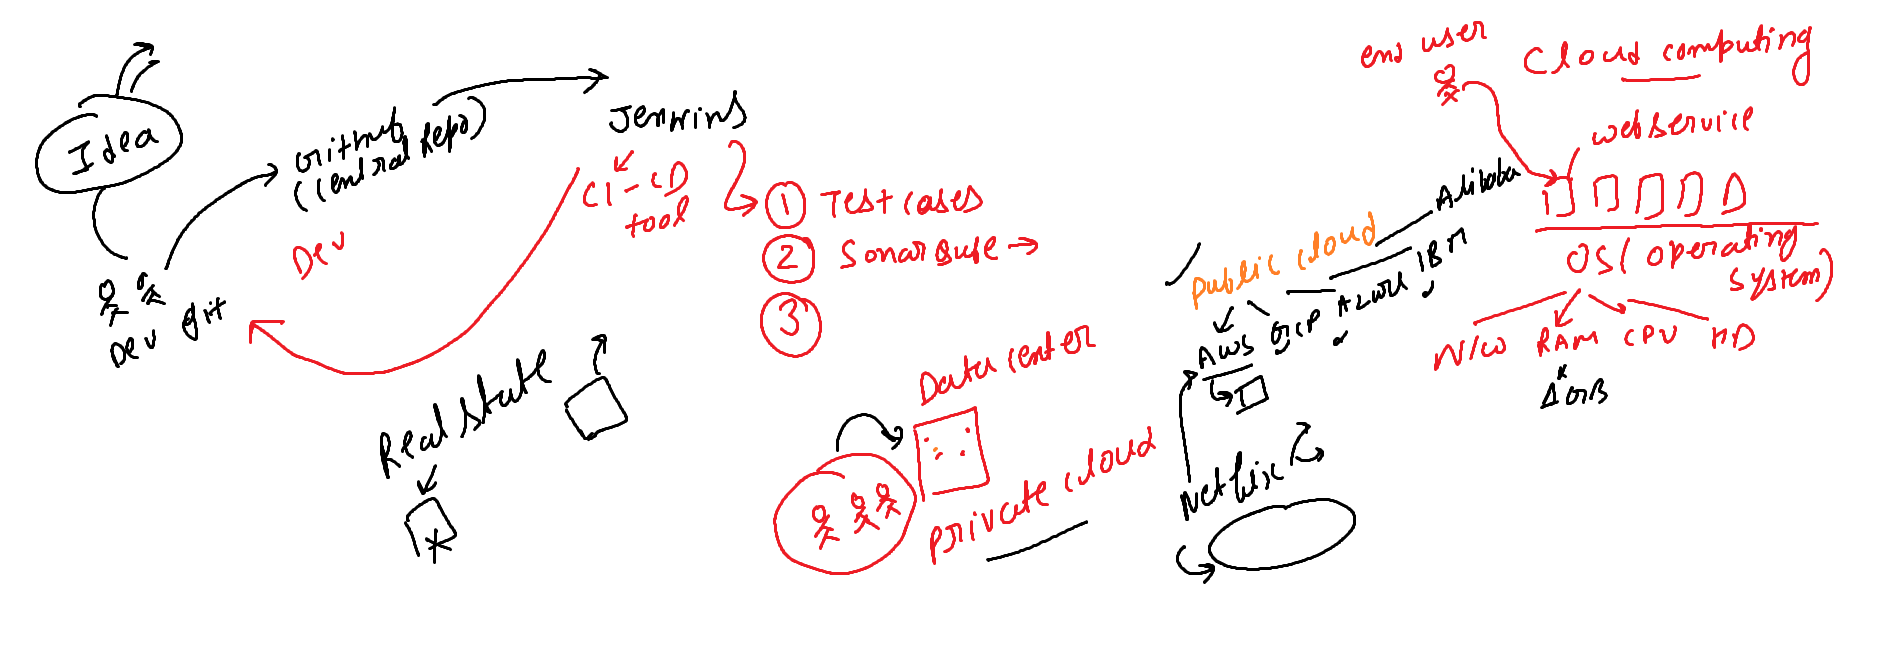 Idea
Dev git
Github
(Central Repo)
Dev
Jenkins
CI-CD
tool
1 Test cases
2 Sonar Qube →
3
Real state
Data center
private cloud
public cloud
AWS GCP Azure IBM
Alibaba
Netflix
end user
Cloud computing
webservice
OS( operating
system)
N/W RAM CPU HD